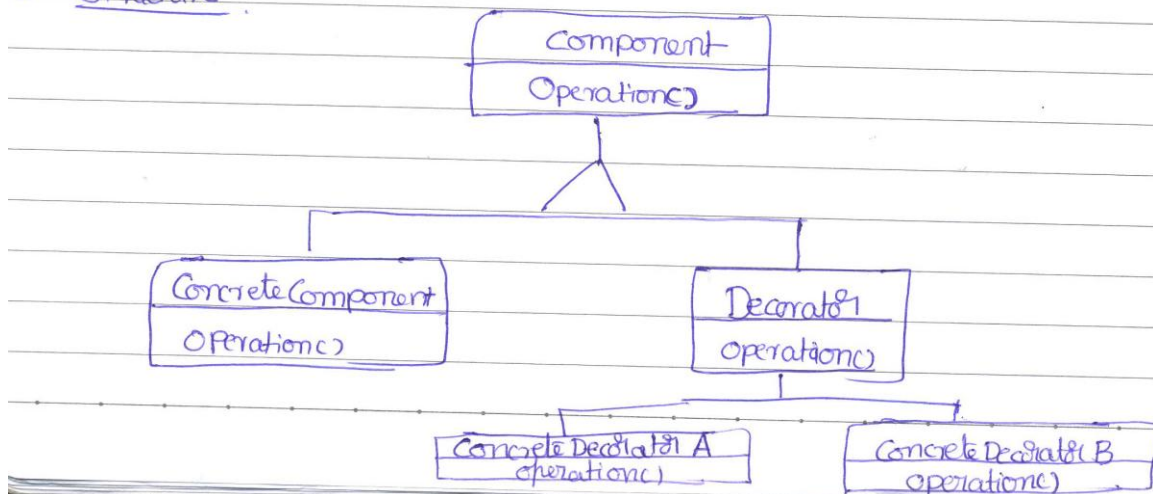 Component
Operation()
ConcreteComponent
Operation()
Decorator
operation()
Concrete Decorator A
operation()
Concrete Decorator B
operation()